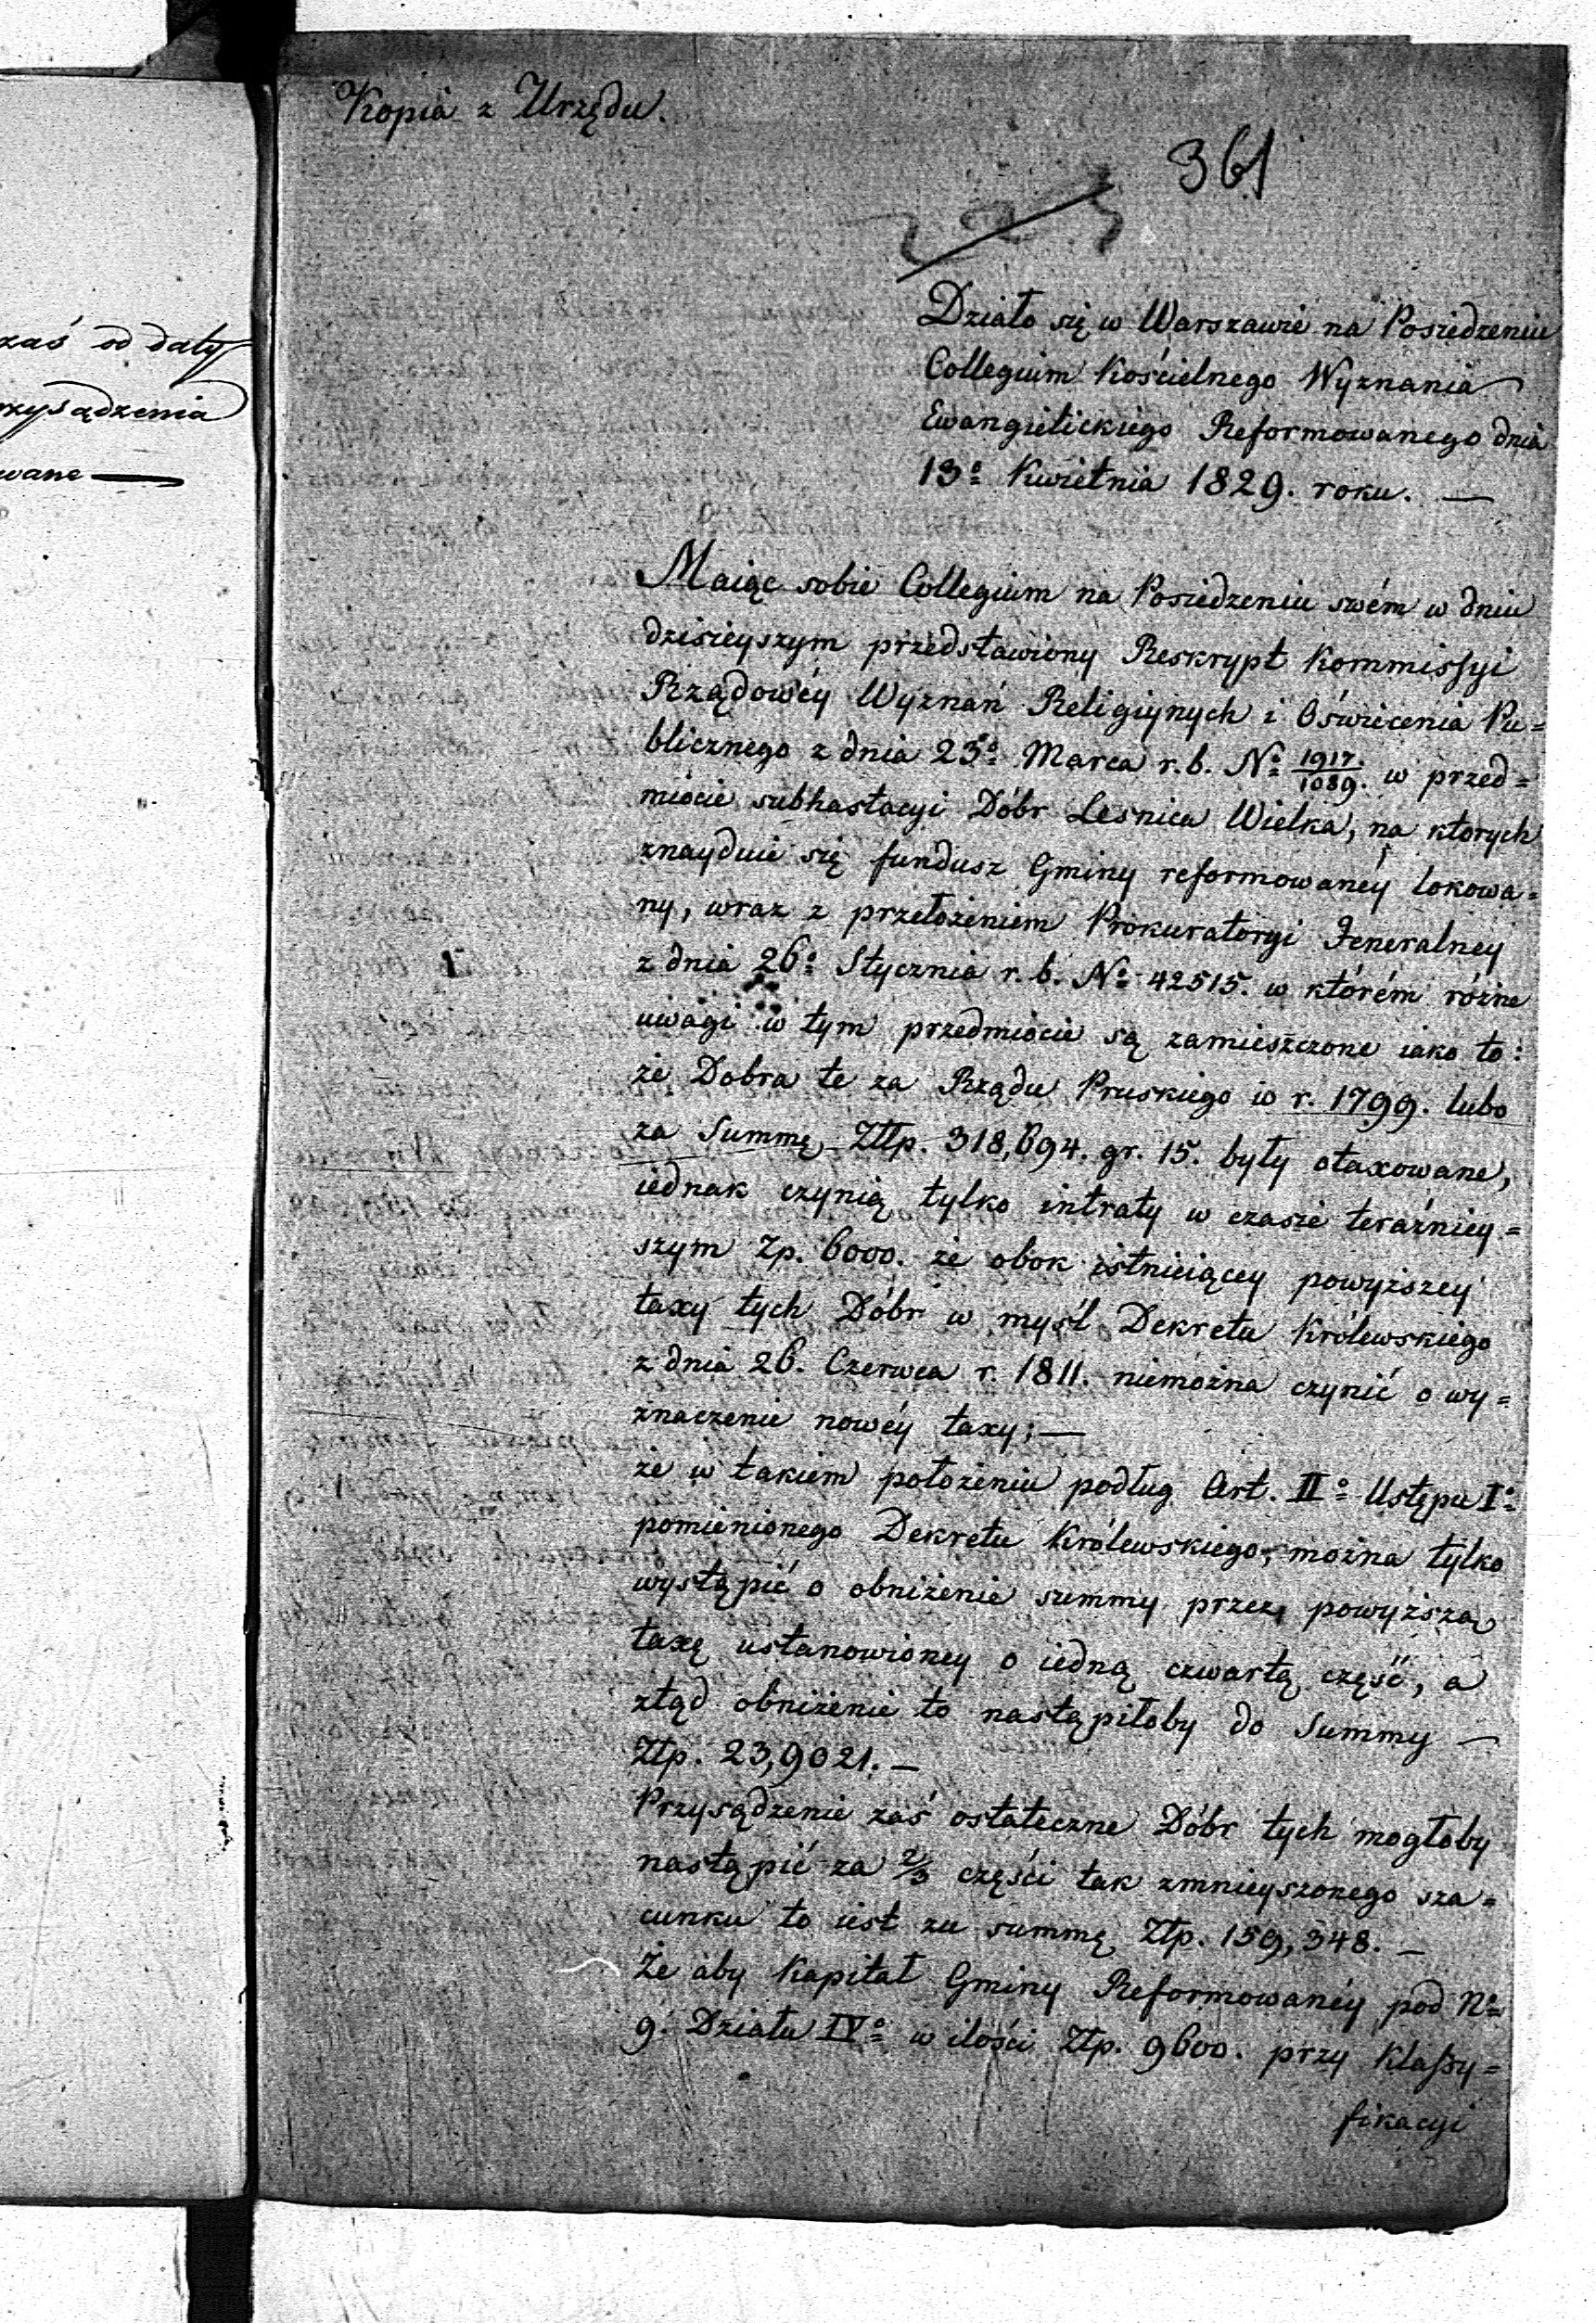 zaś od daty
rzysądzenia
wane —
Kopia z Urzędu.
361
Działo się w Warszawie na Posiedzeniu
Collegium Kościelnego Wyznania
Ewangielickiego Reformowanego dnia
13º Kwietnia 1829. roku. —
Maiąc sobie Collegium na Posiedzeniu swém w dniu
dzisieyszym przedstawiony Reskrypt Kommissyi
Rządowéy Wyznań Religiynych i Oświecenia Pu=
blicznego z dnia 23º Marca r. b. Nº 1917./1089. w przed=
miocie subhastacyi Dóbr Lesnica Wielka, na ktorych
znayduie się fundusz Gminy reformowanéy lokowa=
ny, wraz z przełożeniem Prokuratoryi Jeneralney
z dnia 26º Stycznia r. b. Nº 42515. w którém różne
uwagi w tym przedmiocie są zamieszczone iako to:
że Dobra te za Rządu Pruskiego w r. 1799. lubo
za Summę Złtp. 318,694. gr. 15. były otaxowane,
iednak czynią tylko intraty w czasie teraźniey=
szym Zp. 6000. że obok istnieiącey powyższey
taxy tych Dóbr w myśl Dekretu Królewskiego
z dnia 26. Czerwca r. 1811. niemożna czynić o wy=
znaczenie nowéy taxy; —
że w takiem położeniu podług Art. IIº Ustępu Iº
pomienionego Dekretu Królewskiego, można tylko
wystąpić o obniżenie summy przez powyższą
taxę ustanowioney o iedną czwartą część, a
ztąd obniżenie to nastąpiłoby do Summy —
Złp. 23,9021. —
Przysądzenie zaś ostateczne Dóbr tych mogłoby
nastąpić za 2/3 części tak zmnieyszonego sza=
cunku to iest za summę Złp. 159,348. —
Że aby Kapitał Gminy Reformowanéy pod Nº
9. Działu IVº w ilości Złp. 9600. przy Klassy=
fikacyi